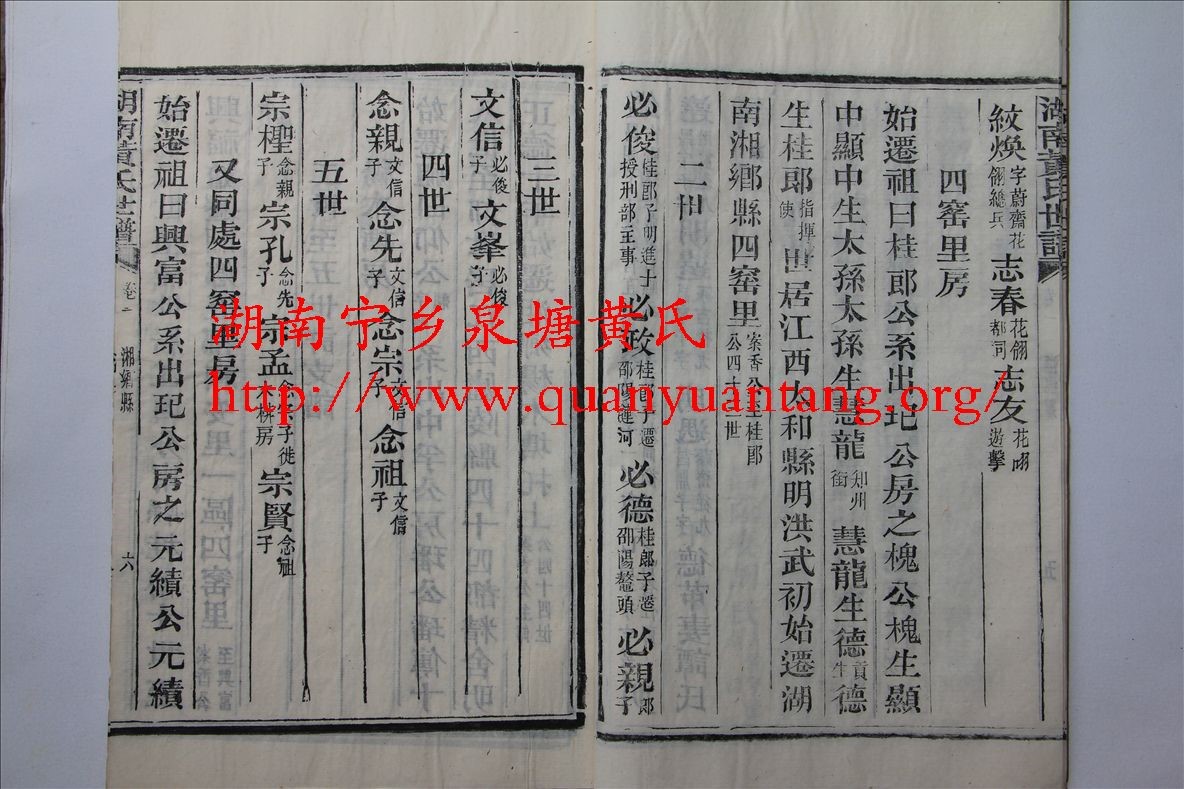 湖南黃氏世譜
紋煥字蔚齋花翎總兵 志春花翎都司 志友花翎遊擊
四窰里房
始遷祖曰桂郎公系出玘公房之槐公槐生顯
中顯中生太孫太孫生慧龍知州銜 慧龍生德貢生德
生桂郎指揮使世居江西太和縣明洪武初始遷湖
南湘鄉縣四窰里案香公至桂郎公四十二世
二世
必俊桂郎子明進士授刑部主事 必政桂郎子遷邵陽漣河 必德桂郎子遷邵陽鰲頭 必親郎子
三世
文信必俊子 文峯必俊子
四世
念親文信子 念先文信子 念宗文信子 念祖文信子
五世
宗檉念親子 宗孔念先子 宗孟念宗子徙 房 宗賢念祖子
又同處四窰里房
始遷祖曰興富公系出玘公房之元績公元績
湖南黃氏世譜 卷 湘鄉縣 六
胡南宁乡泉塘黄氏
http://www.quanyuantang.org/